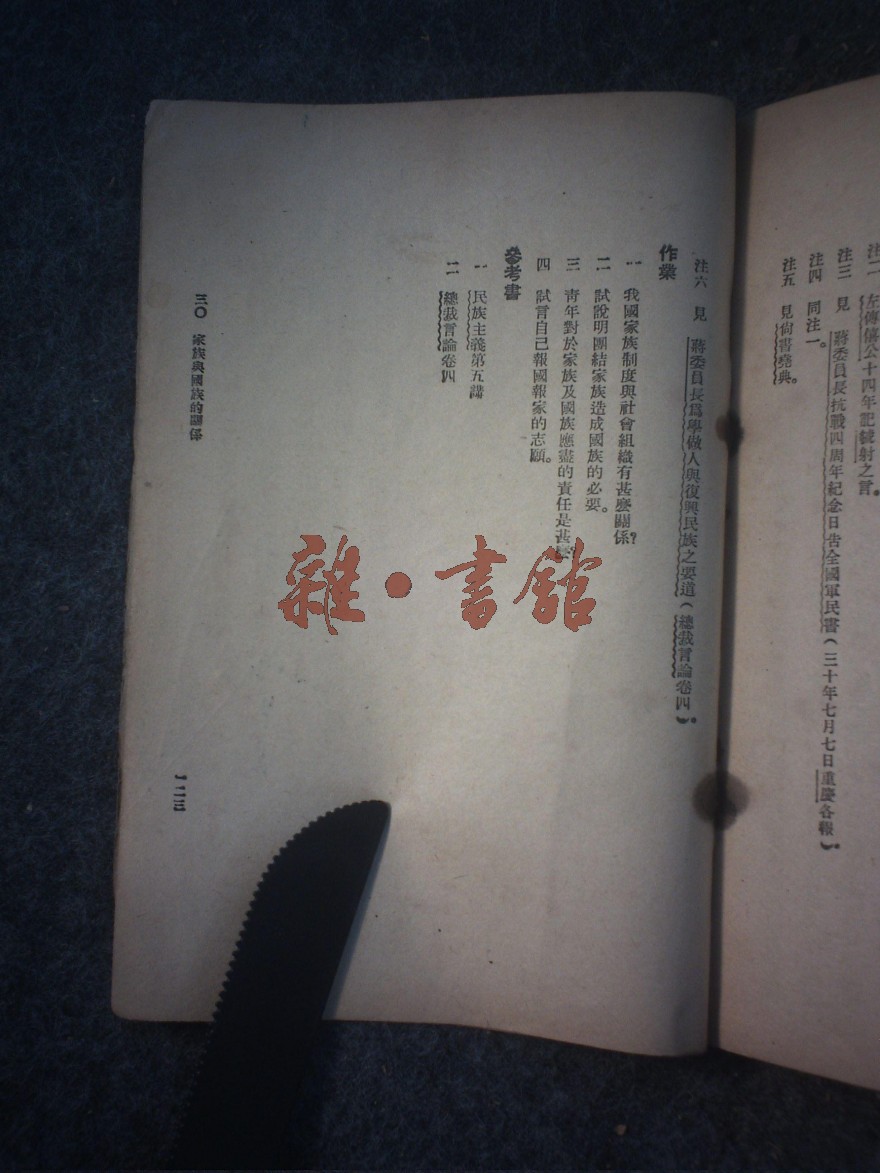 左傳僖公十四年記虢射之言。
注三　見　蔣委員長抗戰四周年紀念日告全國軍民書(三十年七月七日重慶各報)。
注四　同注一。
注五　見尙書堯典。
注六　見　蔣委員長爲學做人與復興民族之要道(總裁言論卷四)。
作業
一　我國家族制度與社會組織有甚麼關係?
二　試說明團結家族造成國族的必要。
三　靑年對於家族及國族應盡的責任是甚麼
四　試言自己報國報家的志願。
參考書
一　民族主義第五講
二　總裁言論卷四
三〇　家族與國族的關係
一二三
雜·書館